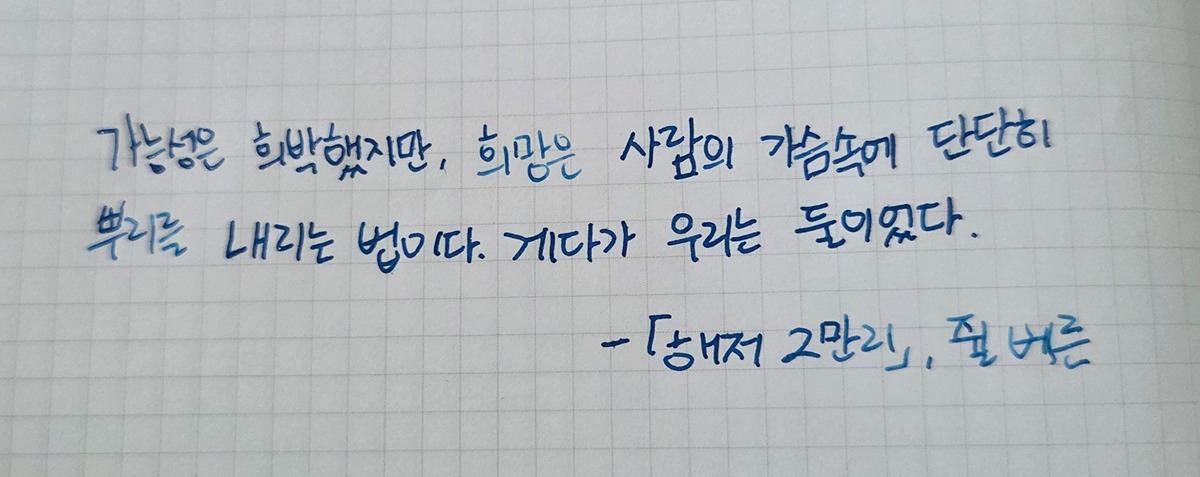 가능성은 희박했지만, 희망은 사람의 가슴속에 단단히
뿌리를 내리는 법이다. 게다가 우리는 둘이었다.
-「해저 2만리」, 쥘 베른